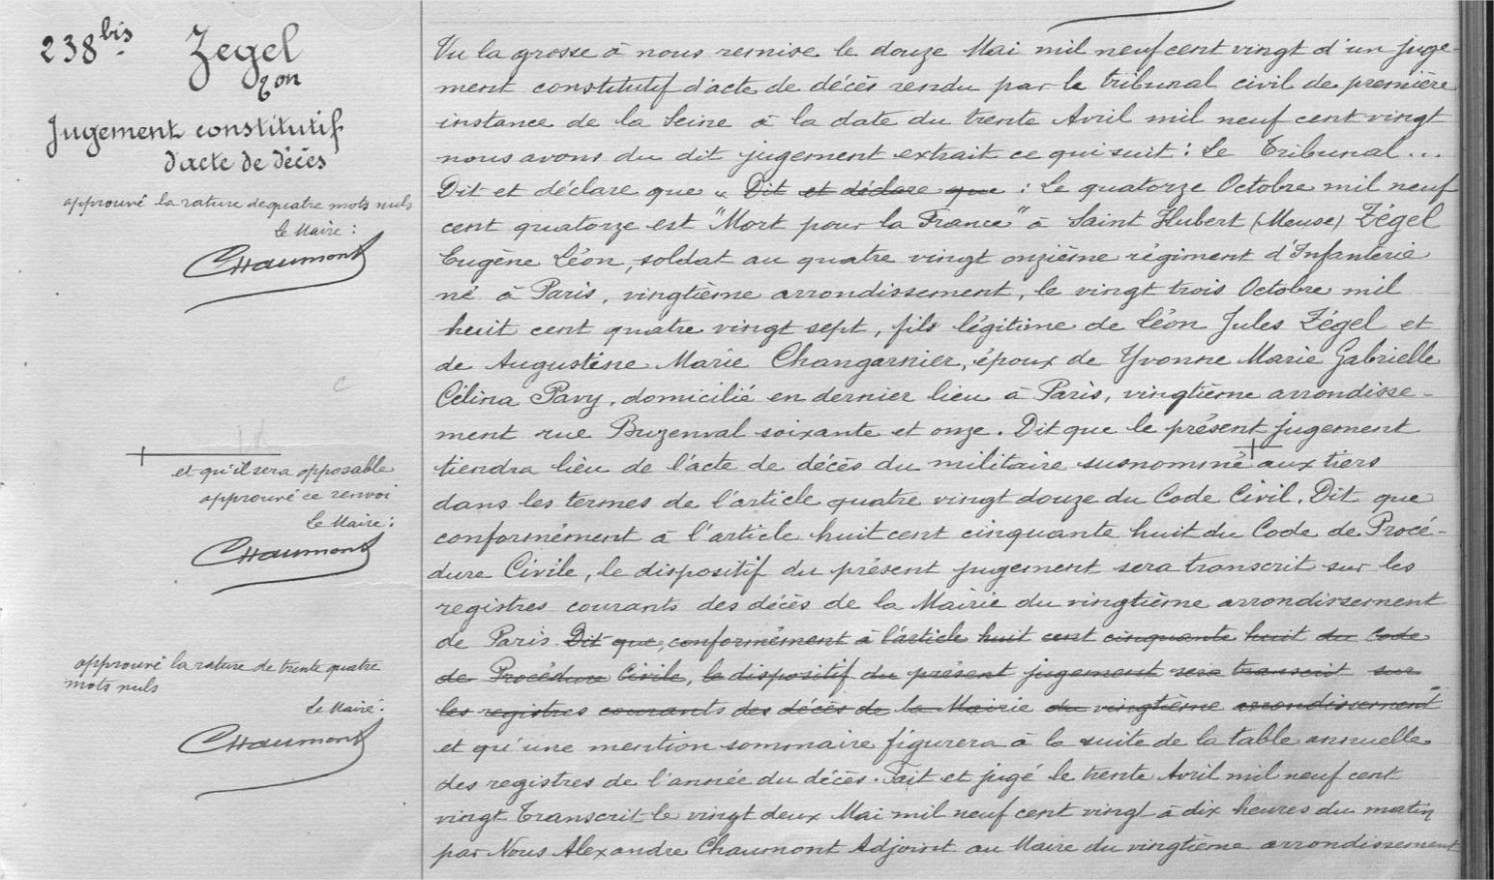 238 bis
Zegel
Léon
Jugement constitutif
d'acte de décès
approuvé la rature de quatre mots nuls
Le Maire :
Chaumont
et qu'il sera opposable
approuvé ce renvoi
Le Maire :
Chaumont
approuvé la rature de trente quatre
mots nuls
Le Maire :
Chaumont
Vu la grosse à nous remise le douze Mai mil neuf cent vingt d'un juge-
ment constitutif d'acte de décès rendu par le tribunal civil de première
instance de la Seine à la date du trente Avril mil neuf cent vingt
nous avons du dit jugement extrait ce qui suit : Le Tribunal ...
Dit et déclare que " Dit et déclare que : Le quatorze Octobre mil neuf
cent quatorze est "Mort pour la France" à Saint Hubert (Meuse) Zégel
Eugène Léon, soldat au quatre vingt onzième régiment d'Infanterie
né à Paris, vingtième arrondissement, le vingt trois Octobre mil
huit cent quatre vingt sept, fils légitime de Léon Jules Zégel et
de Augustine Marie Changarnier, époux de Yvonne Marie Gabrielle
Célina Pavy, domicilié en dernier lieu à Paris, vingtième arrondisse-
ment rue Buzenval soixante et onze. Dit que le présent jugement
tiendra lieu de l'acte de décès du militaire susnommé aux tiers
dans les termes de l'article quatre vingt douze du Code Civil. Dit que
conformément à l'article huit cent cinquante huit du Code de Procé-
dure Civile, le dispositif du présent jugement sera transcrit sur les
registres courants des décès de la Mairie du vingtième arrondissement
de Paris Dit que, conformément à l'article huit cent cinquante huit du Code
de Procédure Civile, le dispositif du présent jugement sera transcrit sur
les registres courants des décès de la Mairie du vingtième arrondissement
et qu'une mention sommaire figurera à la suite de la table annuelle
des registres de l'année du décès. Fait et jugé le trente Avril mil neuf cent
vingt Transcrit le vingt deux Mai mil neuf cent vingt à dix heures du matin
par Nous Alexandre Chaumont Adjoint au Maire du vingtième arrondissement